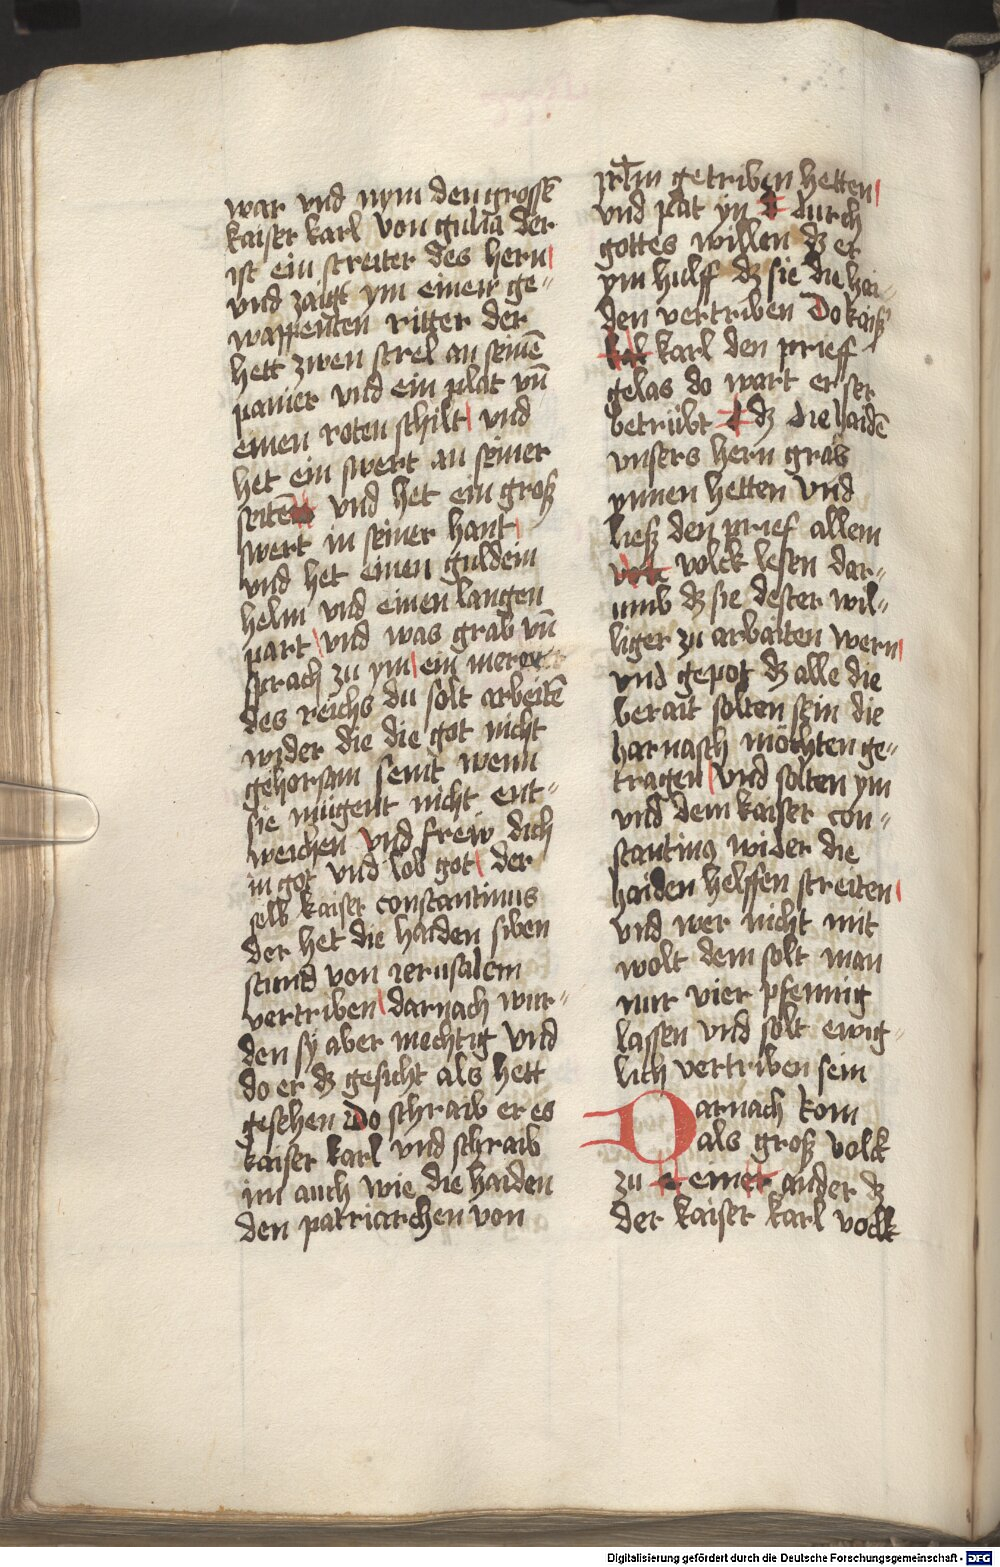 war vnd nym den grossē
kaiser karl von gulia der
ist ein streiter des hern
vnd zaigt ym einen ge-
wappenten ritter der
hett zwen strel an seinē
panier vnd ein plat vn̄
einen roten schilt vnd
het ein swert an seiner
seitē vnd het ein groß
swert in seiner hant
vnd het einen guldein
helm vnd einen langen
part vnd was grab vn̄
sprach zu ym ein merer
des reichs du solt arbeitē
wider die die got nicht
gehorsam seint wenn
sie mugent nicht ent-
weichen vnd frew dich
in got vnd lob got der
selb kaiser constantinus
der het die haiden siben
stund von ierusalem
vertriben darnach wur-
den sy aber mechtig vnd
do er dz gesicht als hett
gesehen Do schraib er es
kaiser karl vnd schraib
im auch wie die haiden
den patriarchen von
jrłm getriben hetten
vnd pat yn durch
gottes willen dz er
ym hulff dz sie die hai-
den vertriben Do kaiß
karl den prieff
gelas do wart er ser
betrübt dz die haidē
vnsers hern grab
ynnen hetten vnd
ließ den prief allem
volck lesen dar-
umb dz sie dester wil-
liger zu arbaiten wern
vnd gepot dz alle die
berait solten sein die
harnasch möchten ge-
tragen vnd solten ym
vnd dem kaiser con-
stantinus wider die
haiden helffen streiten
vnd wer nicht mit
wolt dem solt man
nur vier pfennig
lassen vnd solt ewig-
lich vertriben sein
Darnach kom
als groß volck
zu einander dz
der kaiser karl volck
Digitalisierung gefördert durch die Deutsche Forschungsgemeinschaft - DFG